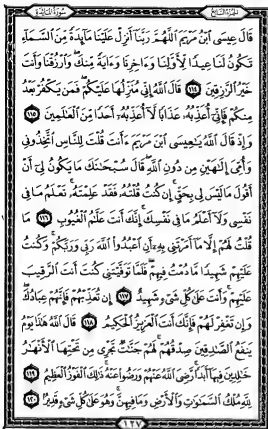 الجزء السابع سورة المائدة
قَالَ عِيسَى ابْنُ مَرْيَمَ اللَّهُمَّ رَبَّنَا أَنزِلْ عَلَيْنَا مَائِدَةً مِّنَ السَّمَاءِ
تَكُونُ لَنَا عِيدًا لِّأَوَّلِنَا وَءَاخِرِنَا وَءَايَةً مِّنكَ وَارْزُقْنَا وَأَنتَ
خَيْرُ الرَّازِقِينَ ١١٤ قَالَ اللَّهُ إِنِّي مُنَزِّلُهَا عَلَيْكُمْ فَمَن يَكْفُرْ بَعْدُ
مِنكُمْ فَإِنِّي أُعَذِّبُهُ عَذَابًا لَّا أُعَذِّبُهُ أَحَدًا مِّنَ الْعَالَمِينَ ١١٥
وَإِذْ قَالَ اللَّهُ يَاعِيسَى ابْنَ مَرْيَمَ ءَأَنتَ قُلْتَ لِلنَّاسِ اتَّخِذُونِي
وَأُمِّيَ إِلَٰهَيْنِ مِن دُونِ اللَّهِ قَالَ سُبْحَانَكَ مَا يَكُونُ لِي أَنْ
أَقُولَ مَا لَيْسَ لِي بِحَقٍّ إِن كُنتُ قُلْتُهُ فَقَدْ عَلِمْتَهُ تَعْلَمُ مَا فِي
نَفْسِي وَلَا أَعْلَمُ مَا فِي نَفْسِكَ إِنَّكَ أَنتَ عَلَّامُ الْغُيُوبِ ١١٦ مَا
قُلْتُ لَهُمْ إِلَّا مَا أَمَرْتَنِي بِهِ أَنِ اعْبُدُوا اللَّهَ رَبِّي وَرَبَّكُمْ وَكُنتُ
عَلَيْهِمْ شَهِيدًا مَّا دُمْتُ فِيهِمْ فَلَمَّا تَوَفَّيْتَنِي كُنتَ أَنتَ الرَّقِيبَ
عَلَيْهِمْ وَأَنتَ عَلَىٰ كُلِّ شَيْءٍ شَهِيدٌ ١١٧ إِن تُعَذِّبْهُمْ فَإِنَّهُمْ عِبَادُكَ
وَإِن تَغْفِرْ لَهُمْ فَإِنَّكَ أَنتَ الْعَزِيزُ الْحَكِيمُ ١١٨ قَالَ اللَّهُ هَٰذَا يَوْمُ
يَنفَعُ الصَّادِقِينَ صِدْقُهُمْ لَهُمْ جَنَّاتٌ تَجْرِي مِن تَحْتِهَا الْأَنْهَارُ
خَالِدِينَ فِيهَا أَبَدًا رَّضِيَ اللَّهُ عَنْهُمْ وَرَضُوا عَنْهُ ذَٰلِكَ الْفَوْزُ الْعَظِيمُ ١١٩
لِلَّهِ مُلْكُ السَّمَاوَاتِ وَالْأَرْضِ وَمَا فِيهِنَّ وَهُوَ عَلَىٰ كُلِّ شَيْءٍ قَدِيرٌ ١٢٠
١٢٧